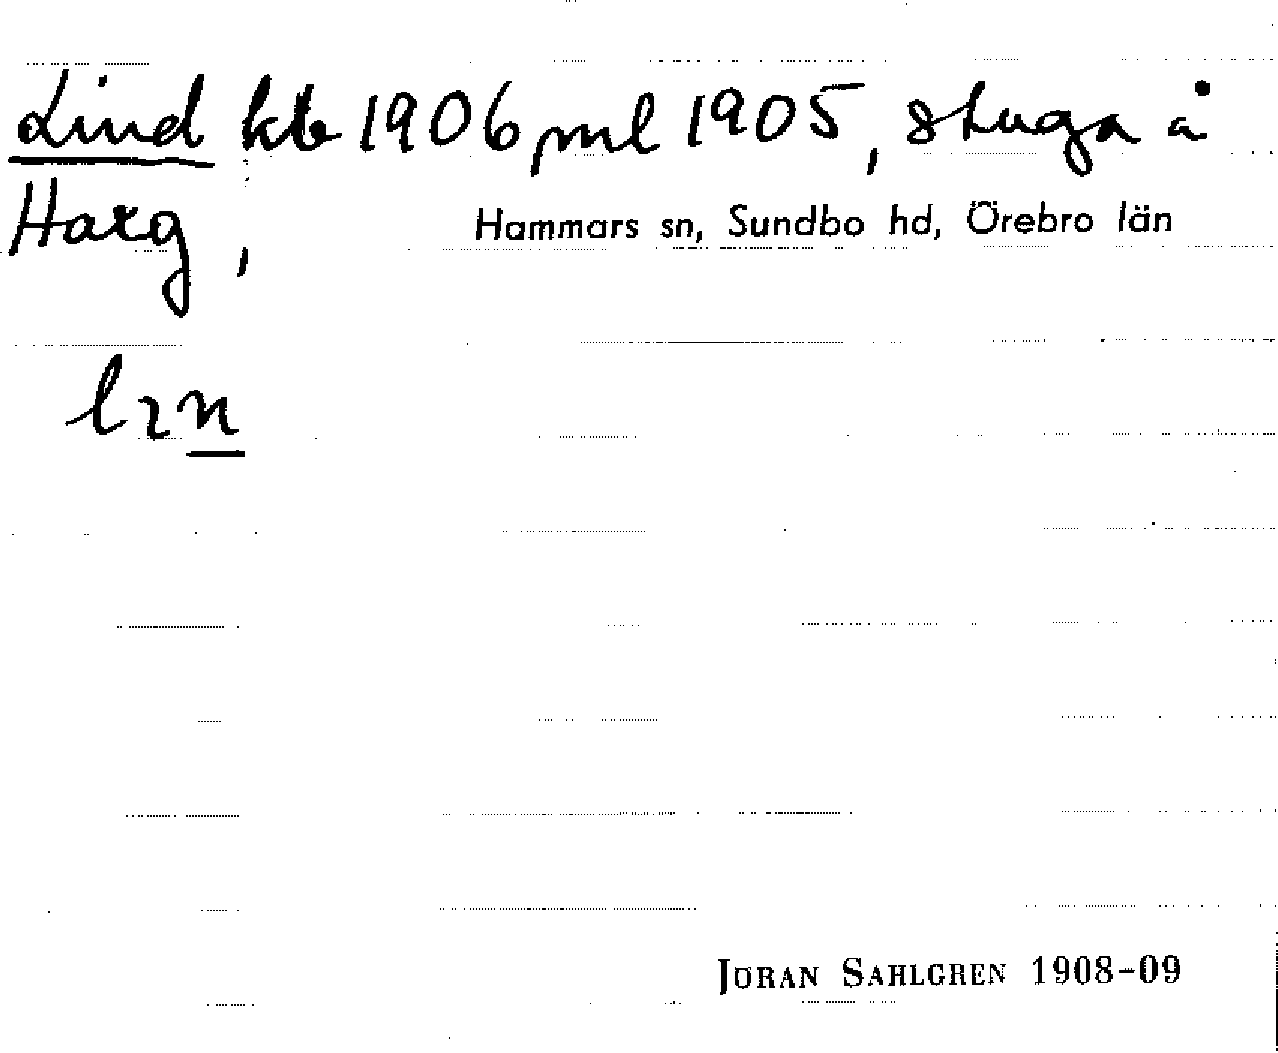 Lind kb 1906, ml 1905, stuga å
Harg,
Hammars sn, Sundbo hd, Örebro län
JÖRAN SAHLGREN 1908-09